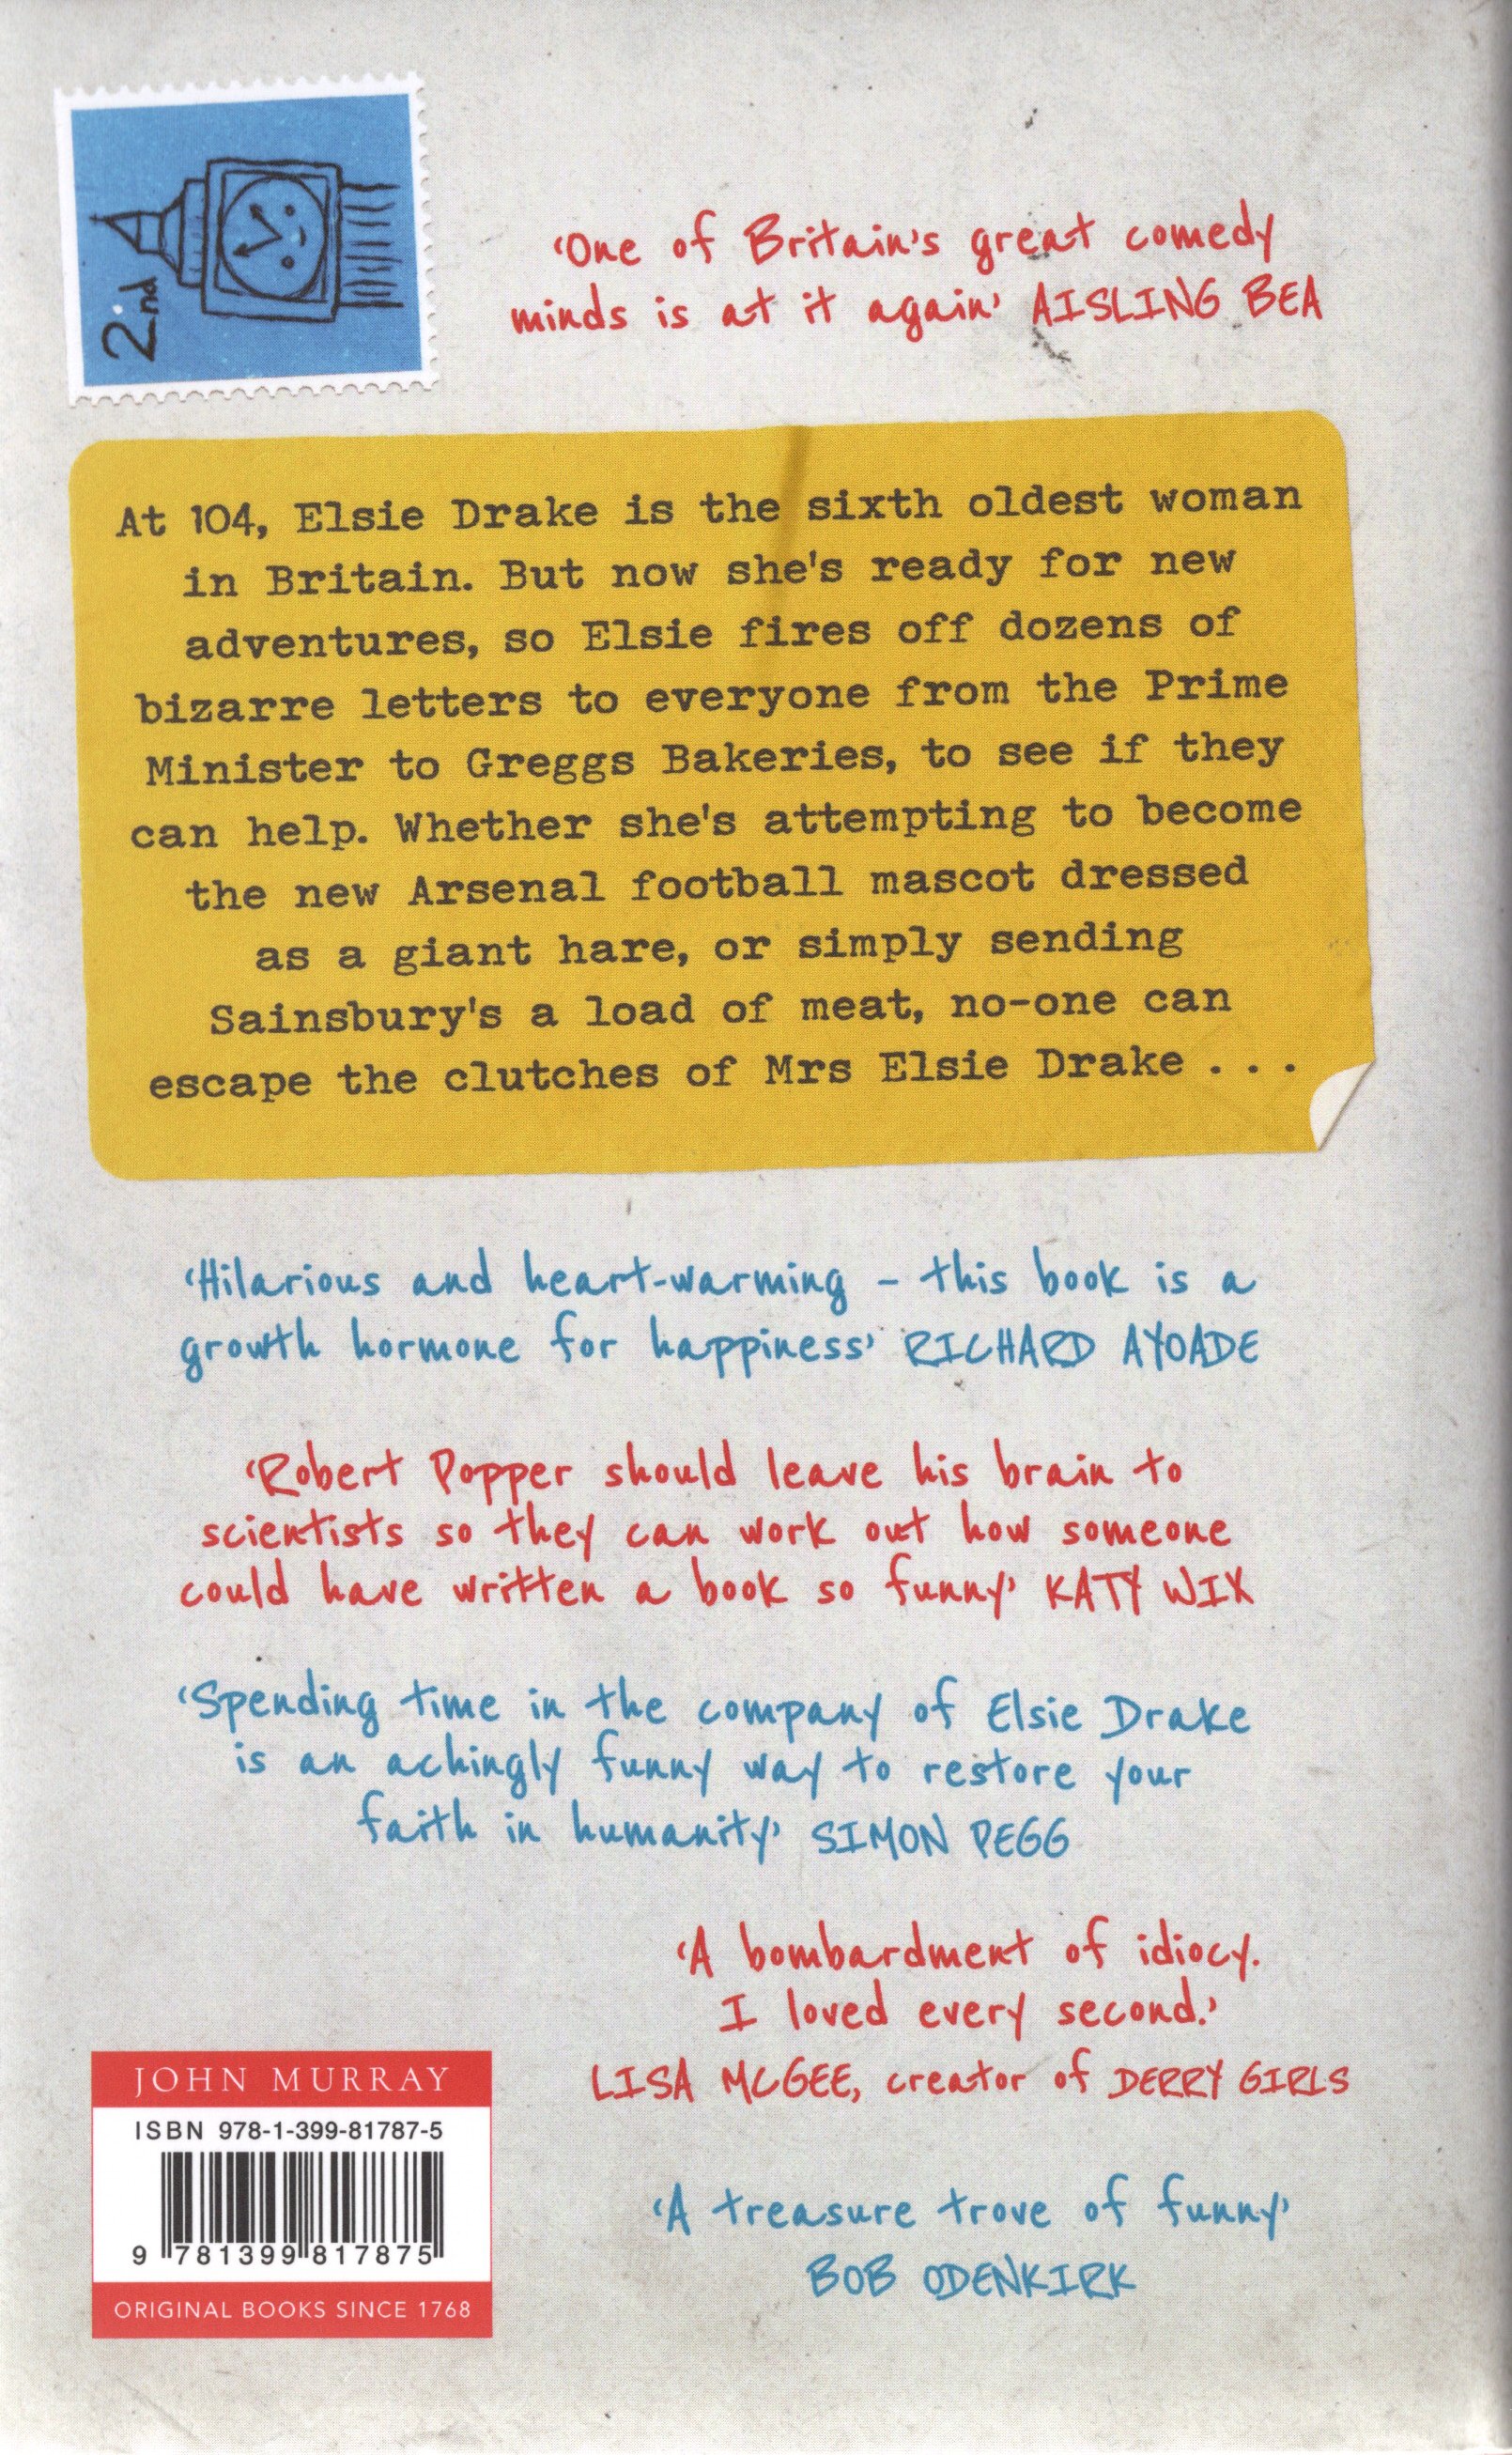 2nd
‘One of Britain's great comedy
minds is at it again’ AISLING BEA
At 104, Elsie Drake is the sixth oldest woman
in Britain. But now she's ready for new
adventures, so Elsie fires off dozens of
bizarre letters to everyone from the Prime
Minister to Greggs Bakeries, to see if they
can help. Whether she's attempting to become
the new Arsenal football mascot dressed
as a giant hare, or simply sending
Sainsbury's a load of meat, no-one can
escape the clutches of Mrs Elsie Drake . . .
‘Hilarious and heart-warming – this book is a
growth hormone for happiness’ RICHARD AYOADE
‘Robert Popper should leave his brain to
scientists so they can work out how someone
could have written a book so funny’ KATY WIX
‘Spending time in the company of Elsie Drake
is an achingly funny way to restore your
faith in humanity’ SIMON PEGG
‘A bombardment of idiocy.
I loved every second.’
LISA MCGEE, creator of DERRY GIRLS
‘A treasure trove of funny’
BOB ODENKIRK
JOHN MURRAY
ISBN 978-1-399-81787-5
9 781399 817875
ORIGINAL BOOKS SINCE 1768